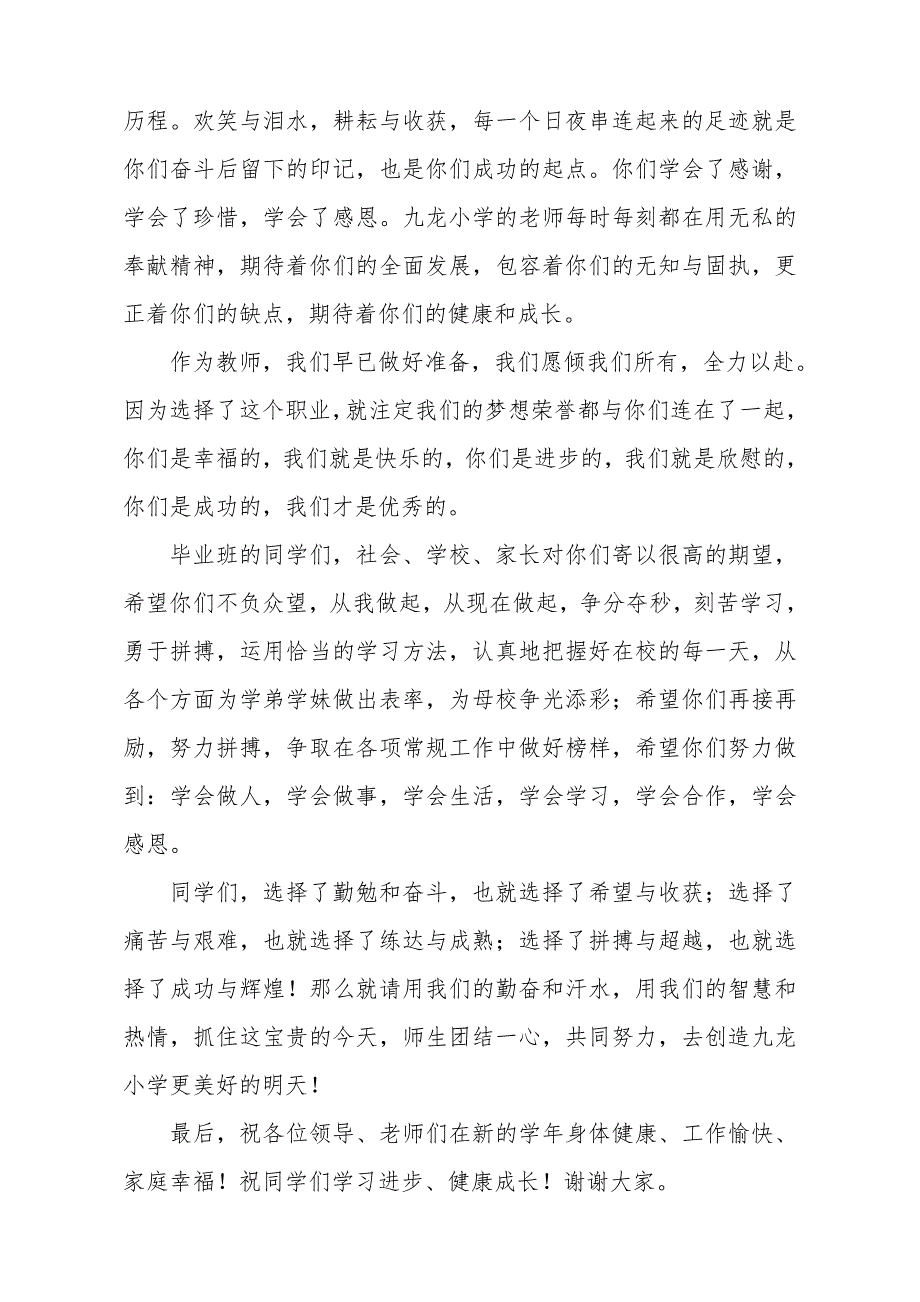 历程。欢笑与泪水，耕耘与收获，每一个日夜串连起来的足迹就是
你们奋斗后留下的印记，也是你们成功的起点。你们学会了感谢，
学会了珍惜，学会了感恩。九龙小学的老师每时每刻都在用无私的
奉献精神，期待着你们的全面发展，包容着你们的无知与固执，更
正着你们的缺点，期待着你们的健康和成长。
作为教师，我们早已做好准备，我们愿倾我们所有，全力以赴。
因为选择了这个职业，就注定我们的梦想荣誉都与你们连在了一起，
你们是幸福的，我们就是快乐的，你们是进步的，我们就是欣慰的，
你们是成功的，我们才是优秀的。
毕业班的同学们，社会、学校、家长对你们寄以很高的期望，
希望你们不负众望，从我做起，从现在做起，争分夺秒，刻苦学习，
勇于拼搏，运用恰当的学习方法，认真地把握好在校的每一天，从
各个方面为学弟学妹做出表率，为母校争光添彩；希望你们再接再
励，努力拼搏，争取在各项常规工作中做好榜样，希望你们努力做
到：学会做人，学会做事，学会生活，学会学习，学会合作，学会
感恩。
同学们，选择了勤勉和奋斗，也就选择了希望与收获；选择了
痛苦与艰难，也就选择了练达与成熟；选择了拼搏与超越，也就选
择了成功与辉煌！那么就请用我们的勤奋和汗水，用我们的智慧和
热情，抓住这宝贵的今天，师生团结一心，共同努力，去创造九龙
小学更美好的明天！
最后，祝各位领导、老师们在新的学年身体健康、工作愉快、
家庭幸福！祝同学们学习进步、健康成长！谢谢大家。